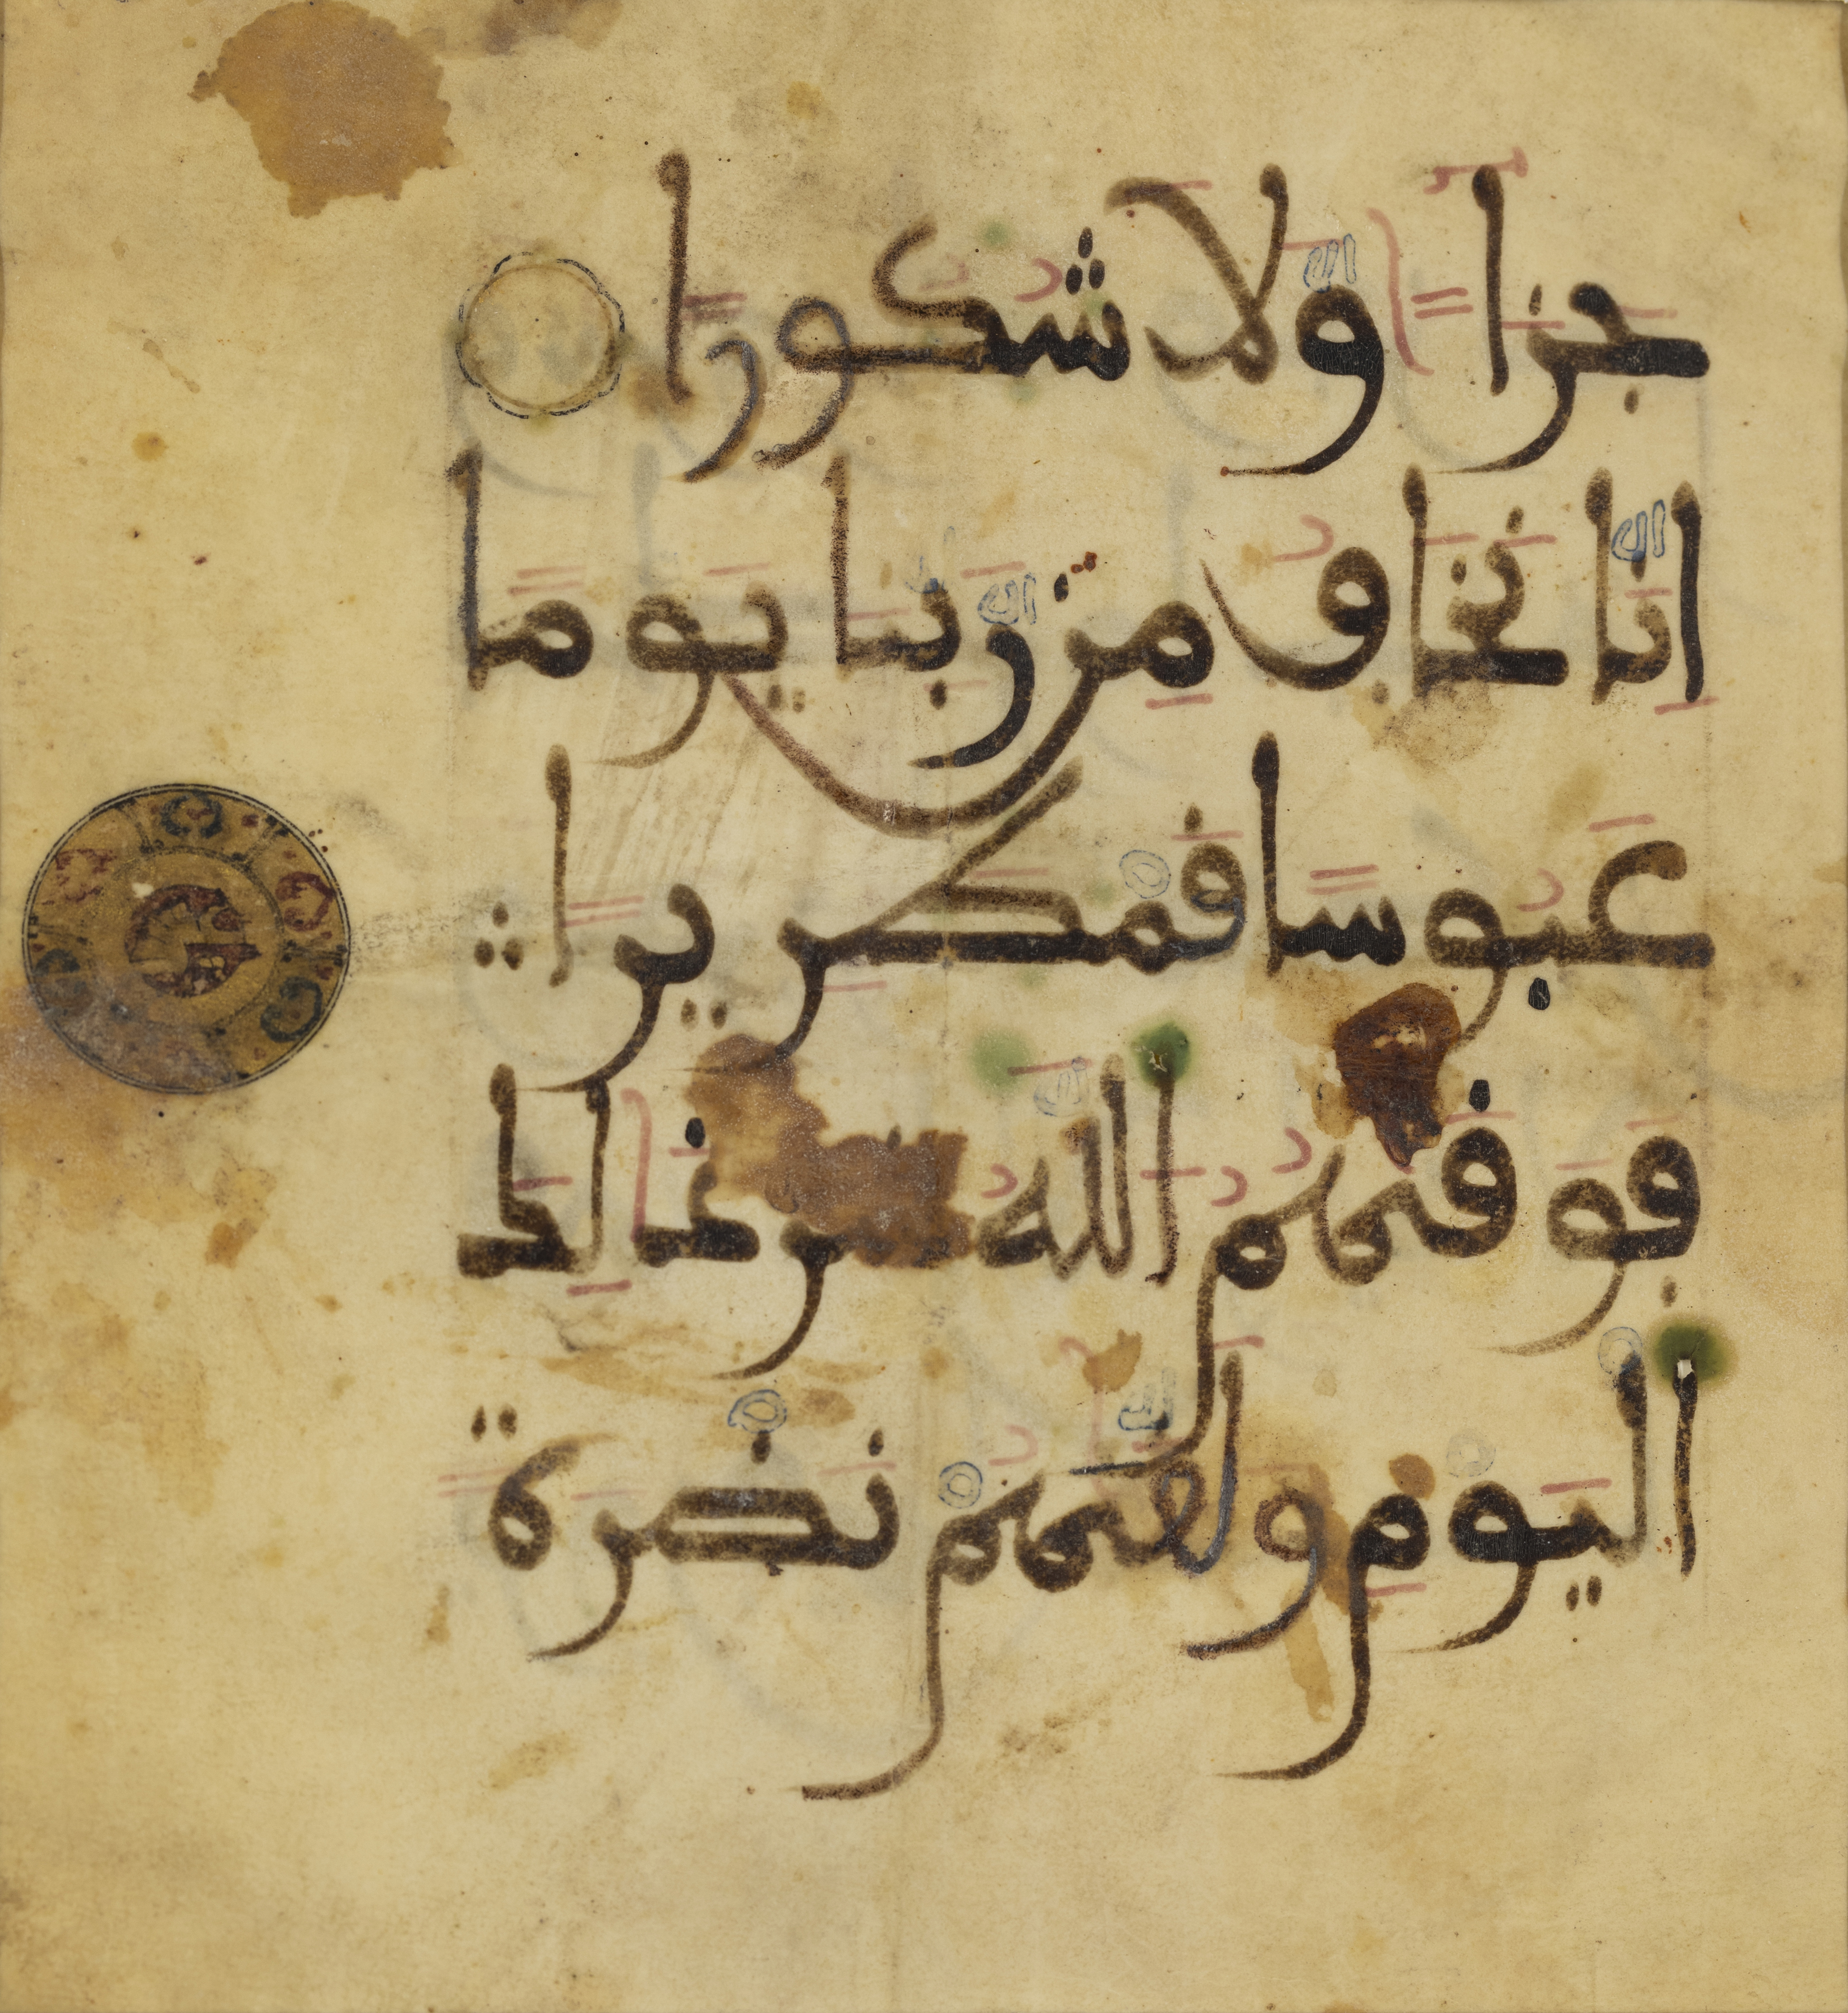 جزاء ولا شكورا
انا نخاف من ربنا يوما
عبوسا قمطريرا
فوقىهم الله شر ذلك
اليوم ولقىهم نضرة